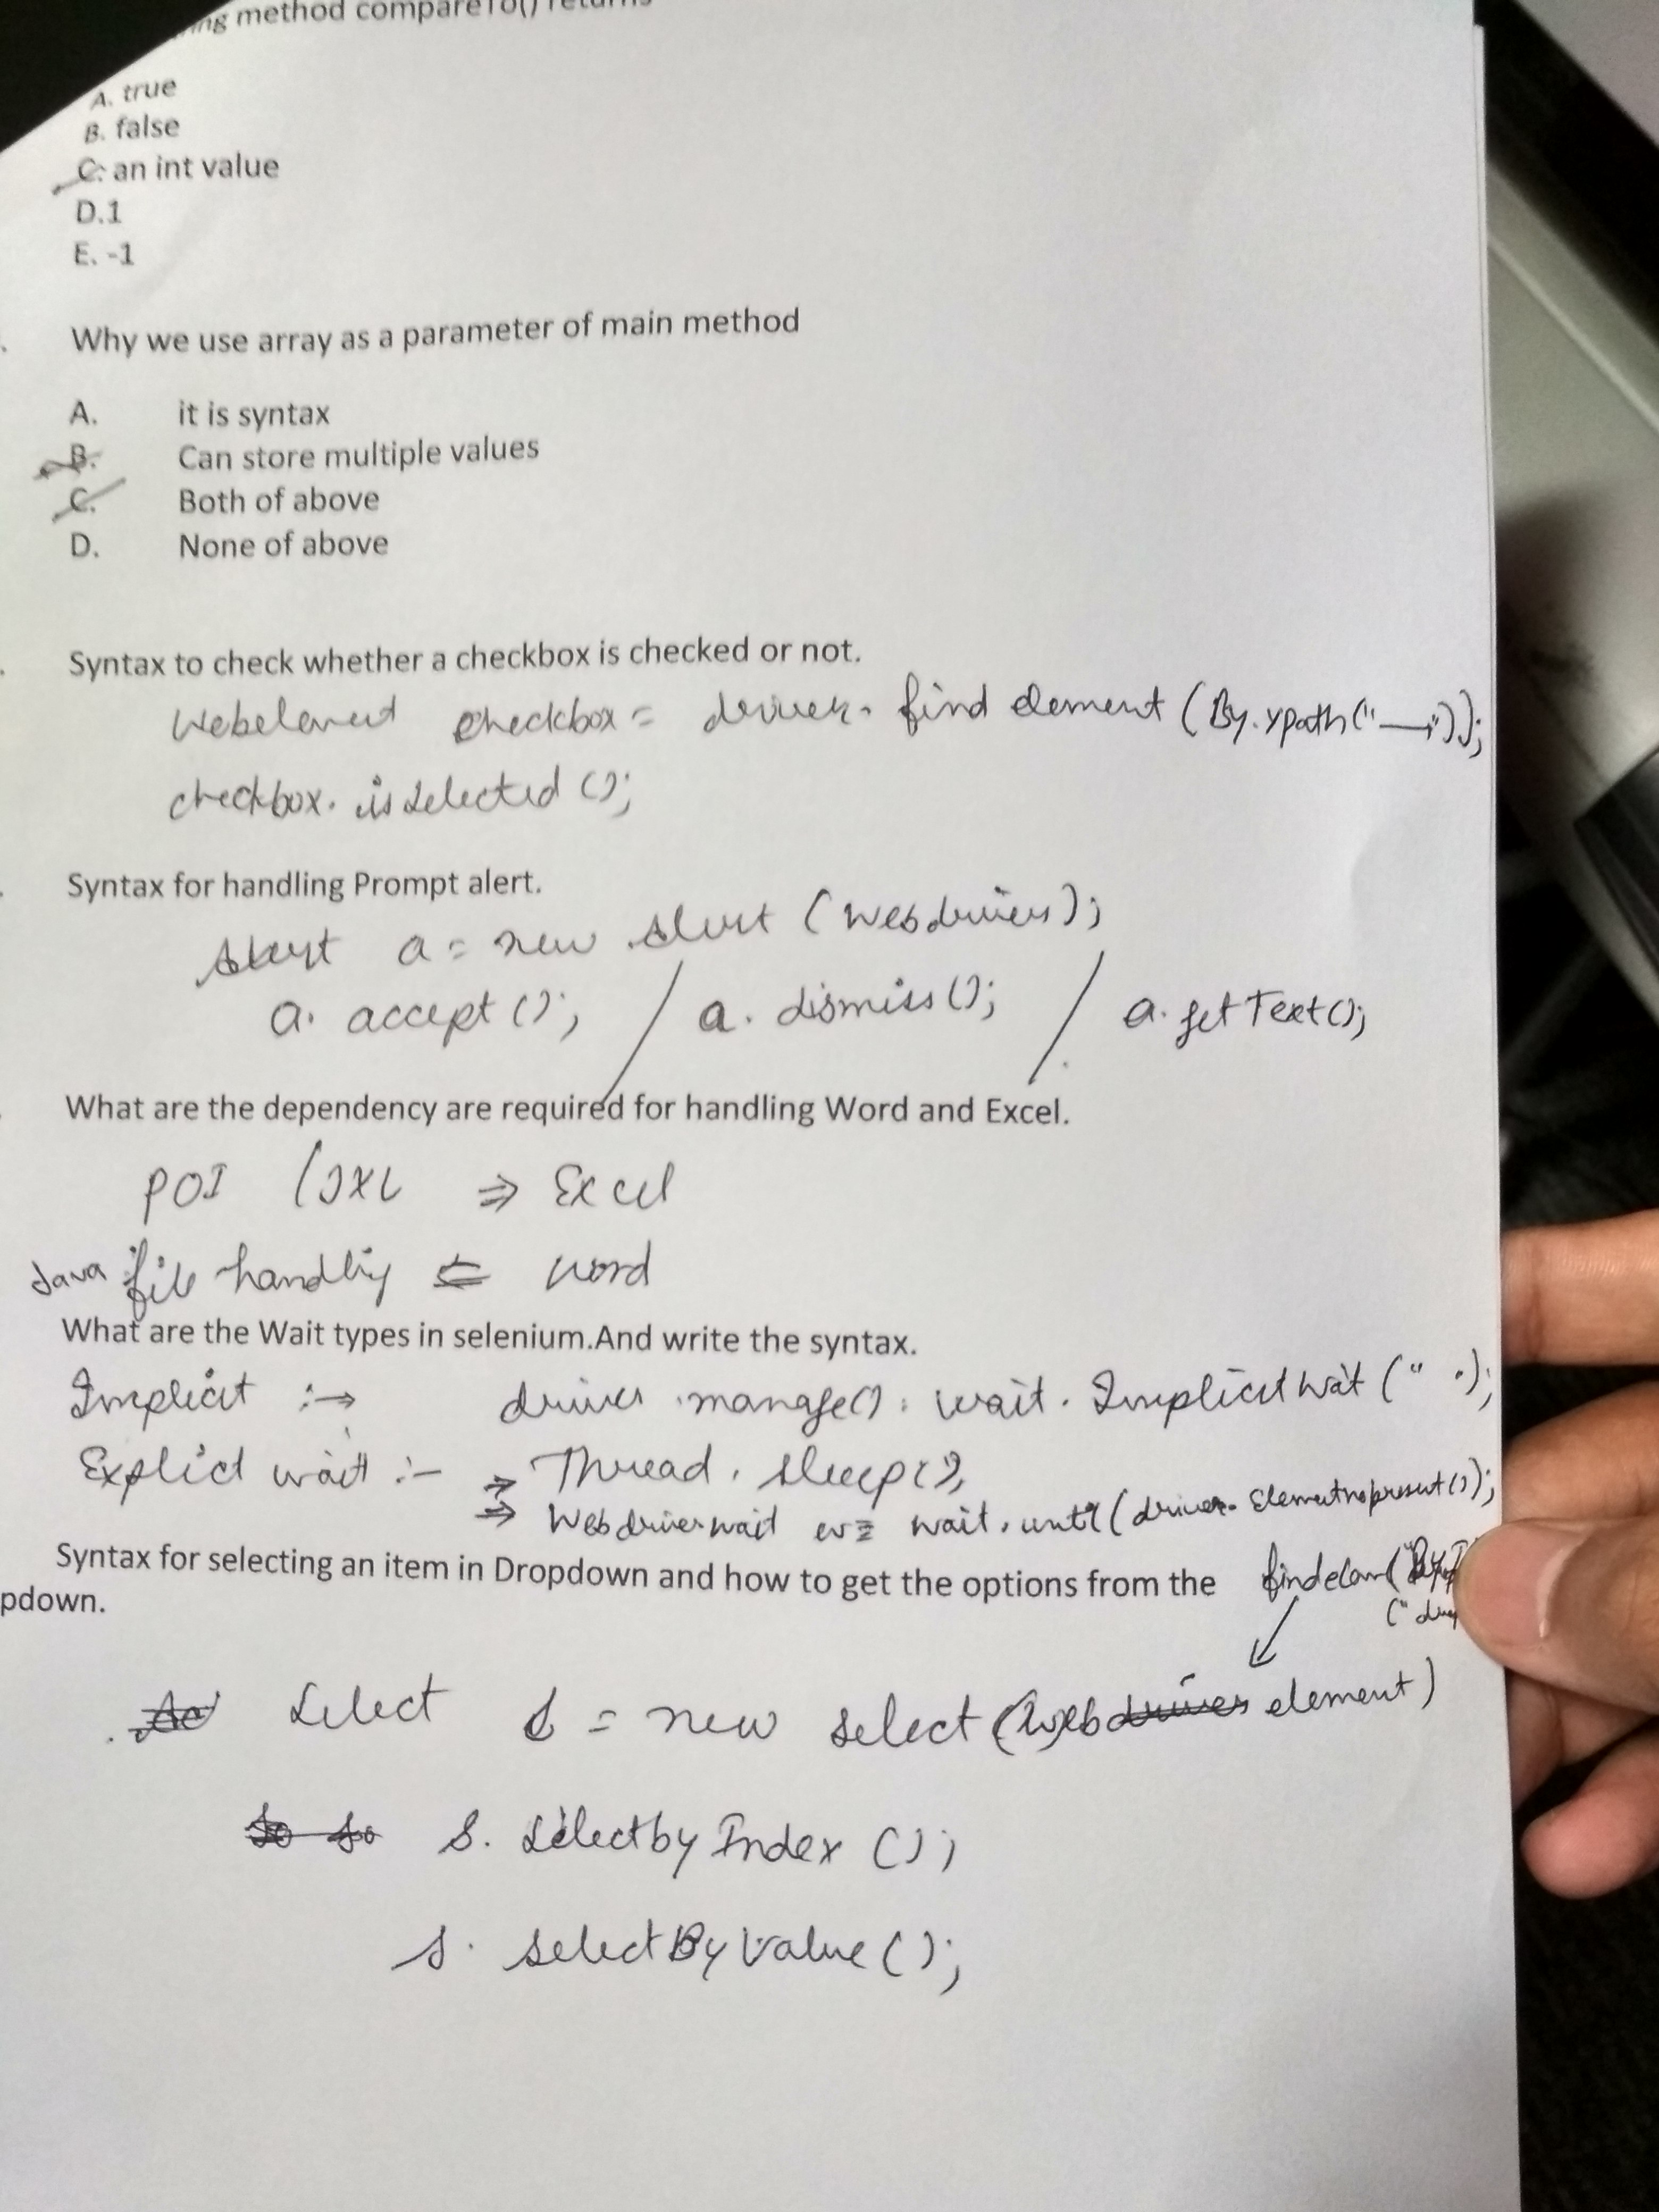 method compareTo() returns
A. true
B. false
C. an int value
D.1
E. -1
Why we use array as a parameter of main method
A. it is syntax
B. Can store multiple values
C. Both of above
D. None of above
Syntax to check whether a checkbox is checked or not.
Webelement checkbox = driver. find element (By.xpath("—"));
checkbox. is selected ();
Syntax for handling Prompt alert.
Alert a = new Alert (Webdriver);
a. accept (); / a. dismiss (); / a. getText();
What are the dependency are required for handling Word and Excel.
POI / JXL ⇒ Excel
Java file handling ⇐ word
What are the Wait types in selenium.And write the syntax.
Implicit :→ driver .manage(). wait. Implicit wait (" ");
Explicit wait :- → Thread. sleep();
⇒ Webdriverwait w = wait. until (driver. present());
Syntax for selecting an item in Dropdown and how to get the options from the
pdown.
Select s = new select (Web driver element)
s. selectby Index ();
s. select By Value ();